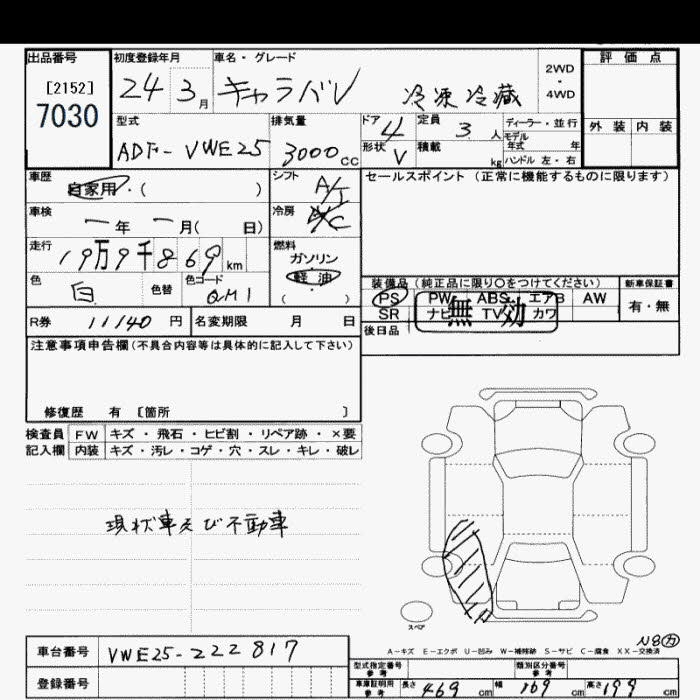 出品番号 初度登録年月 車名・グレード 2WD・4WD 評価点
[2152]
7030 24 3月 キャラバン 冷凍冷蔵
型式 排気量 ドア 4 定員 3人 ディーラー・並行 外装 内装
ADF-VWE25 3000cc 形状 V 積載 kg モデル年式 年
ハンドル 左・右
車歴 自家用・( ) シフト A/T セールスポイント (正常に機能するものに限ります)
車検 一年一月( 日) 冷房 A/C
走行 19万9千869km 燃料 ガソリン
軽油
( )
色 白 色替 色コード QM1
装備品 (純正品に限り〇をつけてください) 新車保証書
PS PW ABS エアB AW 有・無
SR ナビ TV カワ
無効
R券 11140円 名変期限 月 日 後日品
注意事項申告欄(不具合内容等は具体的に記入して下さい)
修復歴 有 〔箇所 〕
検査員 FW キズ・飛石・ヒビ割・リペア跡・×要
記入欄 内装 キズ・汚レ・コゲ・穴・スレ・キレ・破レ
現状車 不動車
スペア
A-キズ E-エクボ U-凹み W-補修跡 S-サビ C-腐食 XX-交換済
車台番号 VWE25-222817
登録番号
型式指定番号 参考 類別区分番号 参考
車庫証明用 参考 長さ 469cm 幅 169cm 高さ 199cm